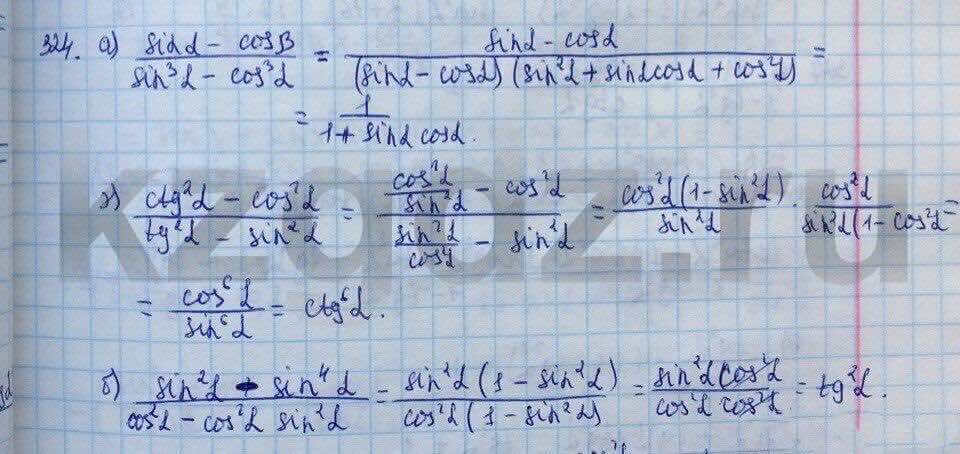 324. а) (sinα - cosβ)/(sin³α - cos³α) = (sinα - cosα)/((sinα - cosα)(sin²α + sinα cosα + cos²α)) =
= 1/(1 + sinα cosα).
г) (ctg²α - cos²α)/(tg²α - sin²α) = (cos²α/sin²α - cos²α)/(sin²α/cos²α - sin²α) = cos²α(1 - sin²α)/sin²α · cos²α/(sin²α(1 - cos²α =
= cos⁶α/sin⁶α = ctg⁶α.
б) (sin²α - sin⁴α)/(cos²α - cos²α sin²α) = sin²α(1 - sin²α)/(cos²α(1 - sin²α)) = (sin²α cos²α)/(cos²α cos²α) = tg²α.
kzgdz.ru